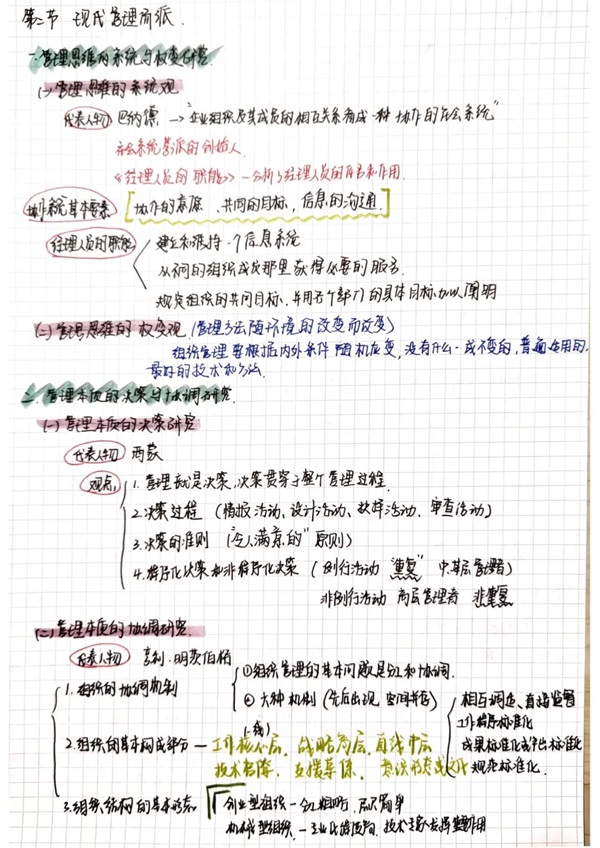 第二节 现代管理流派.
一.管理思维的系统与权变研究.
(一)管理思维的系统观
代表人物 巴纳德 → "企业组织及其成员的相互关系看成一种协作的社会系统"
社会系统学派的创始人.
《经理人员的职能》— 分析了经理人员的角色和作用.
协作系统基本要素 [协作的意愿、共同的目标、信息的沟通]
经理人员的职能 建立和维持一个信息系统
从不同的组织成员那里获得必要的服务.
规定组织的共同目标,并用各个部门的具体目标加以阐明
(二)管理思维的权变观.(管理方法随环境的改变而改变)
组织管理要根据内外条件随机应变,没有什么一成不变的,普遍适用的,
最好的技术和方法.
二.管理本质的决策与协调研究.
(一)管理本质的决策研究
代表人物 西蒙
观点 1.管理就是决策,决策贯穿于整个管理过程.
2.决策过程 (情报活动、设计活动、抉择活动、审查活动)
3.决策的准则 ("令人满意的"原则)
4.程序化决策和非程序化决策 (例行活动 "重复" 中基层管理者)
非例行活动 高层管理者 非重复
(二)管理本质的协调研究.
代表人物 亨利·明茨伯格
1.组织的协调机制
①组织管理的基本问题是分工和协调.
②六种机制(先后出现,空间并存)
相互调适、直接监督
工作程序标准化
成果标准化或产出标准化
规范标准化.
2.组织的基本构成部分 — 工作核心层,战略高层,直线中层
技术官僚,支援幕僚,意识形态或文化
3.组织结构的基本形态
创业型组织 — 分工粗略,层次简单
机械型组织. —